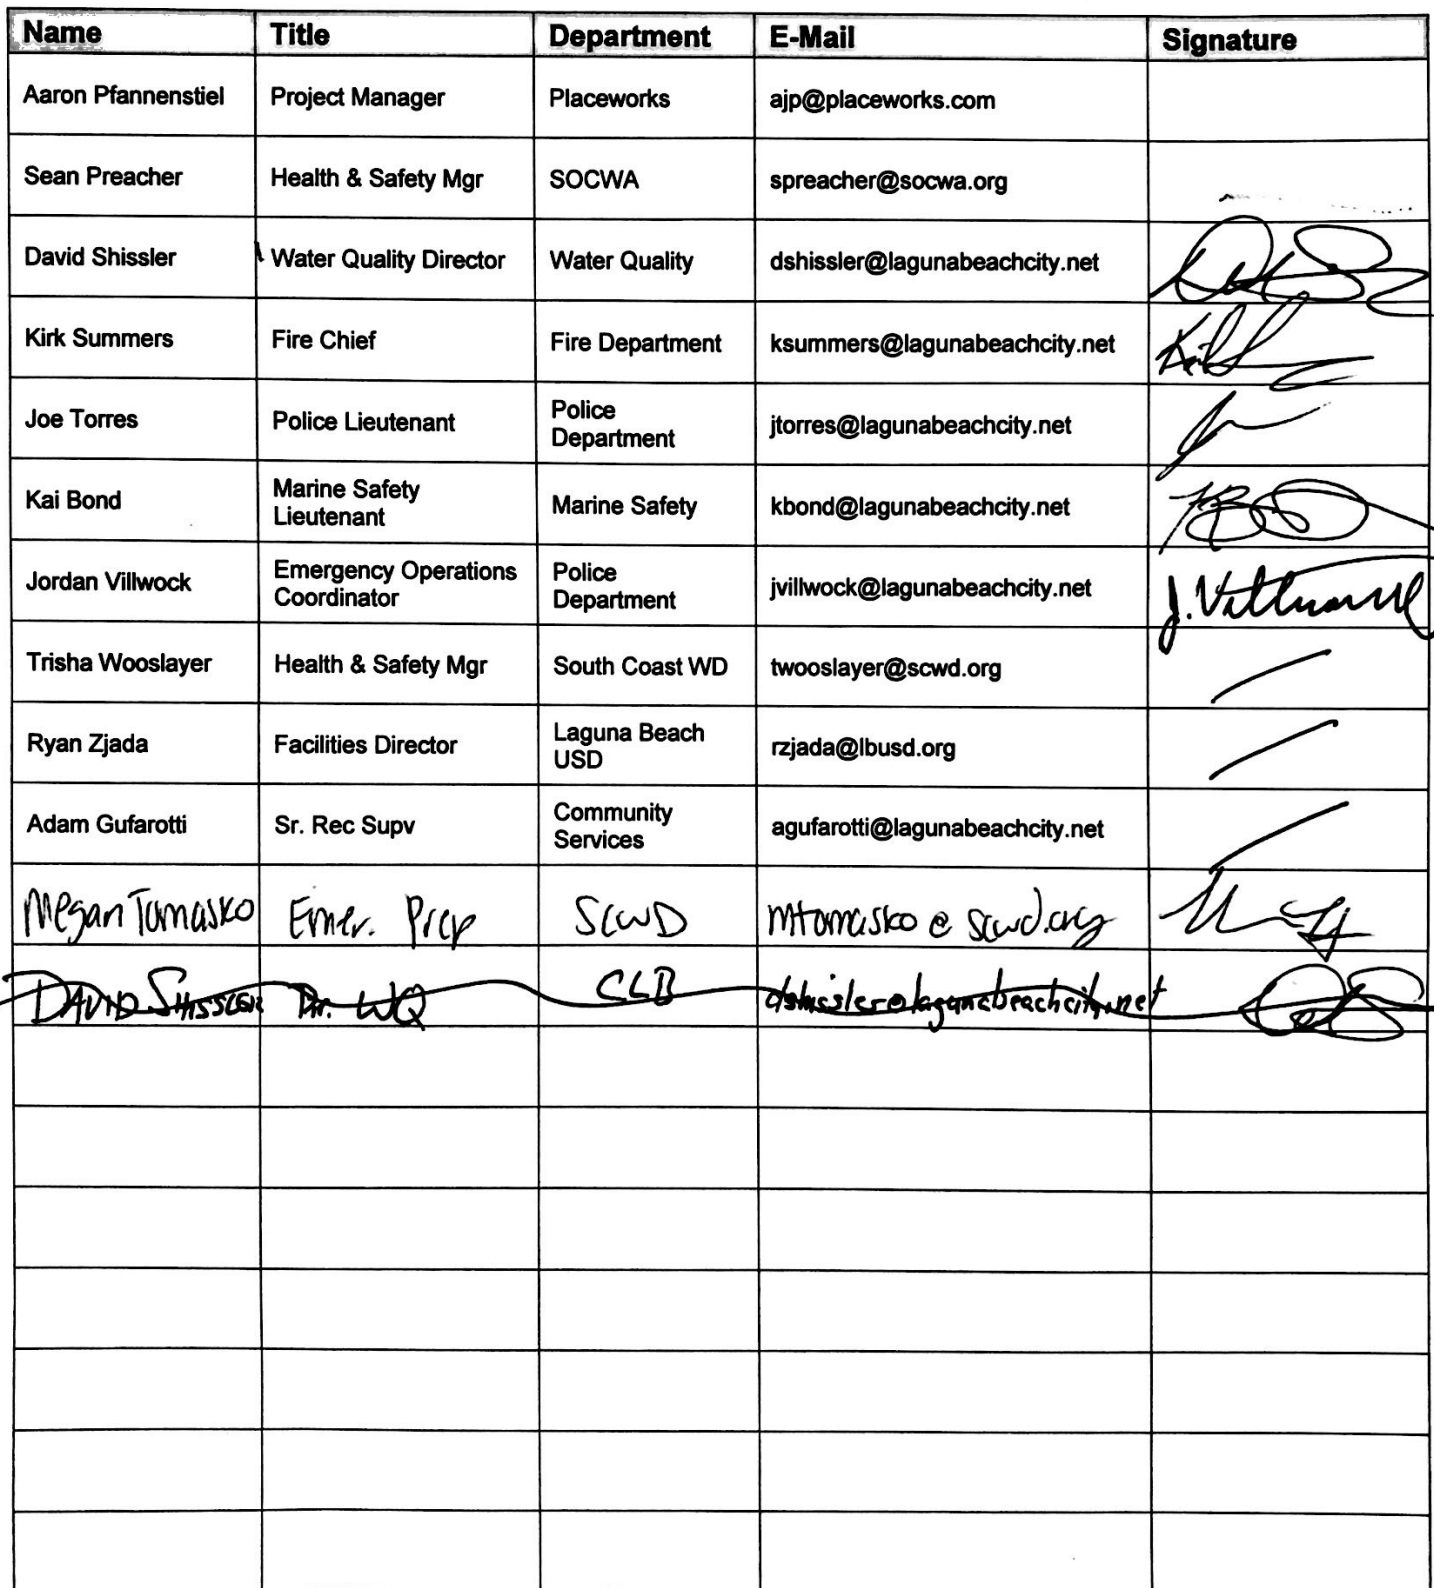 Name Title Department E-Mail Signature
Aaron Pfannenstiel Project Manager Placeworks ajp@placeworks.com
Sean Preacher Health & Safety Mgr SOCWA spreacher@socwa.org
David Shissler Water Quality Director Water Quality dshissler@lagunabeachcity.net
Kirk Summers Fire Chief Fire Department ksummers@lagunabeachcity.net
Joe Torres Police Lieutenant Police Department jtorres@lagunabeachcity.net
Kai Bond Marine Safety Lieutenant Marine Safety kbond@lagunabeachcity.net
Jordan Villwock Emergency Operations Coordinator Police Department jvillwock@lagunabeachcity.net J. Villwock
Trisha Wooslayer Health & Safety Mgr South Coast WD twooslayer@scwd.org
Ryan Zjada Facilities Director Laguna Beach USD rzjada@lbusd.org
Adam Gufarotti Sr. Rec Supv Community Services agufarotti@lagunabeachcity.net
Megan Tomasko Emer. Prep SCWD mtomasko@scwd.org
DAVID SHISSLER Dir. WQ CLB dshissler@lagunabeachcity.net